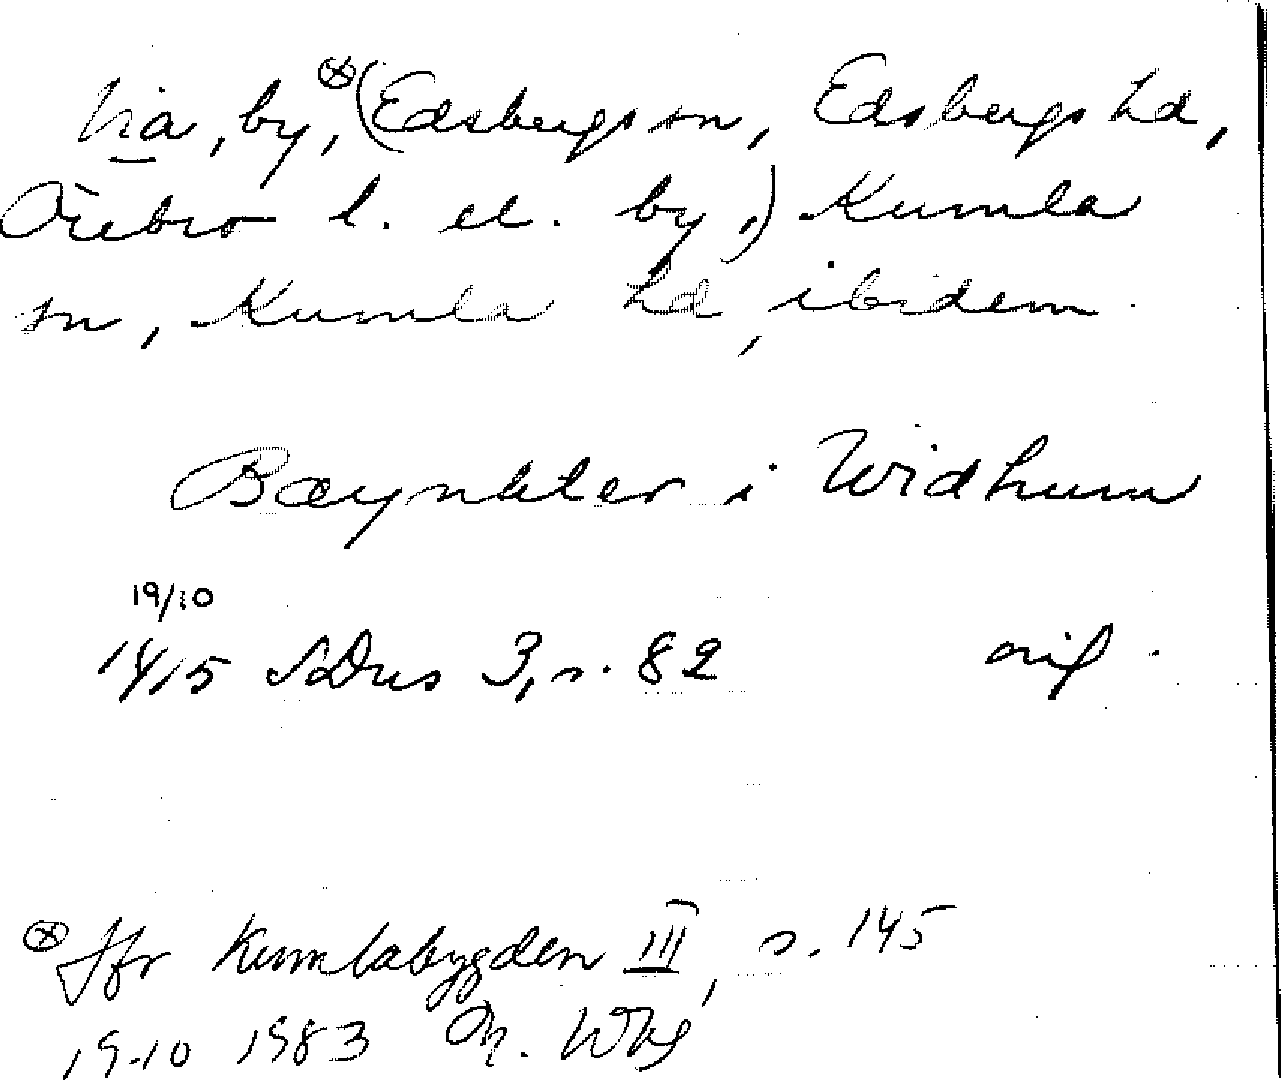 Via, by, ⊗ (Edsbergs sn, Edsbergs hd,
Örebro l. el. by,) Kumla
sn, Kumla hd, ibidem.
Bæynkter i Widhum
19/10
1415 SDns 3, s. 82 orig.
⊗ Jfr Kumlabygden III, s. 145
19.10 1983 M. Wbg